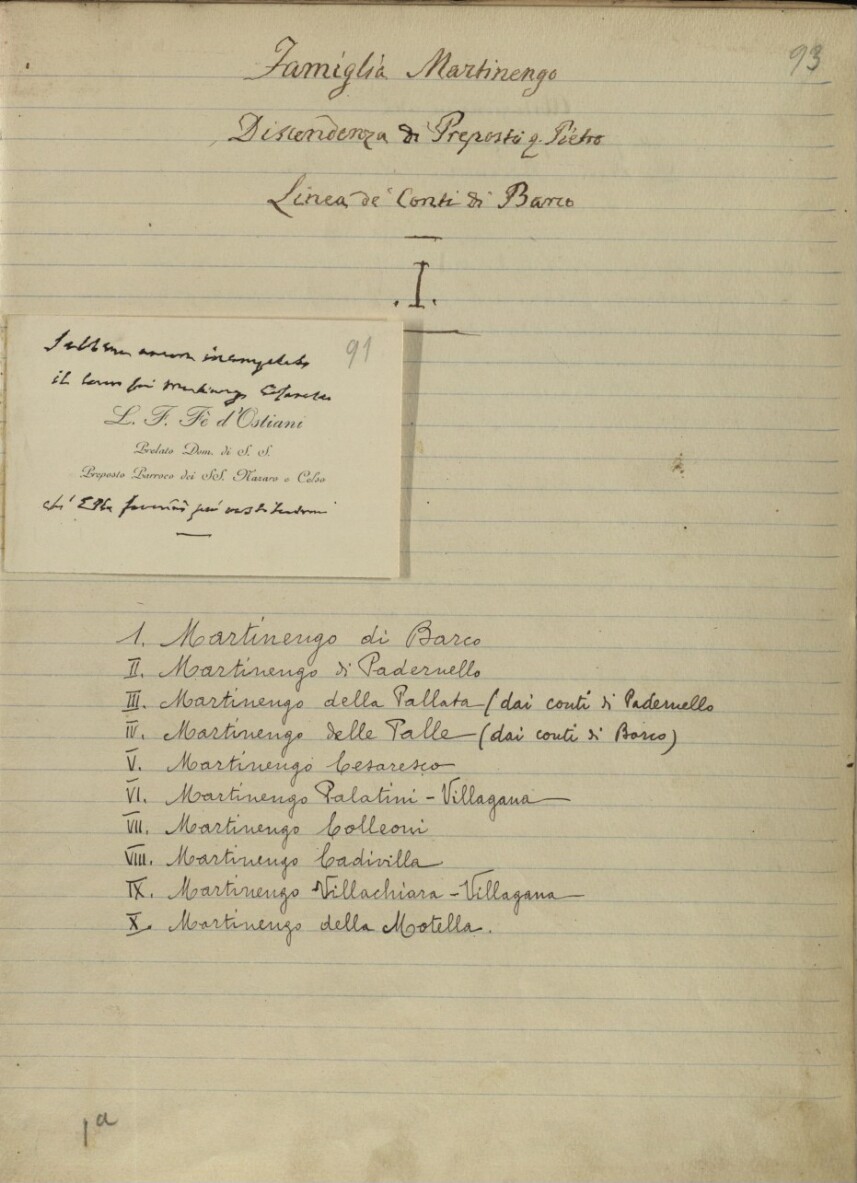 93
Famiglia Martinengo
Discendenza di Preposto q. Pietro
Linea de' Conti di Barco
.I.
91
Sebbene ancora incompleto
il
L. F. Fè d'Ostiani
Prelato Dom. di S. S.
Preposto Parroco dei SS. Nazaro e Celso
1. Martinengo di Barco
II. Martinengo di Padernello
III. Martinengo della Pallata (dai conti di Padernello
IV. Martinengo delle Palle (dai conti di Barco)
V. Martinengo Cesaresco
VI. Martinengo Palatini - Villagana
VII. Martinengo Colleoni
VIII. Martinengo Cadivilla
IX. Martinengo Villachiara - Villagana
X. Martinengo della Motella.
1a